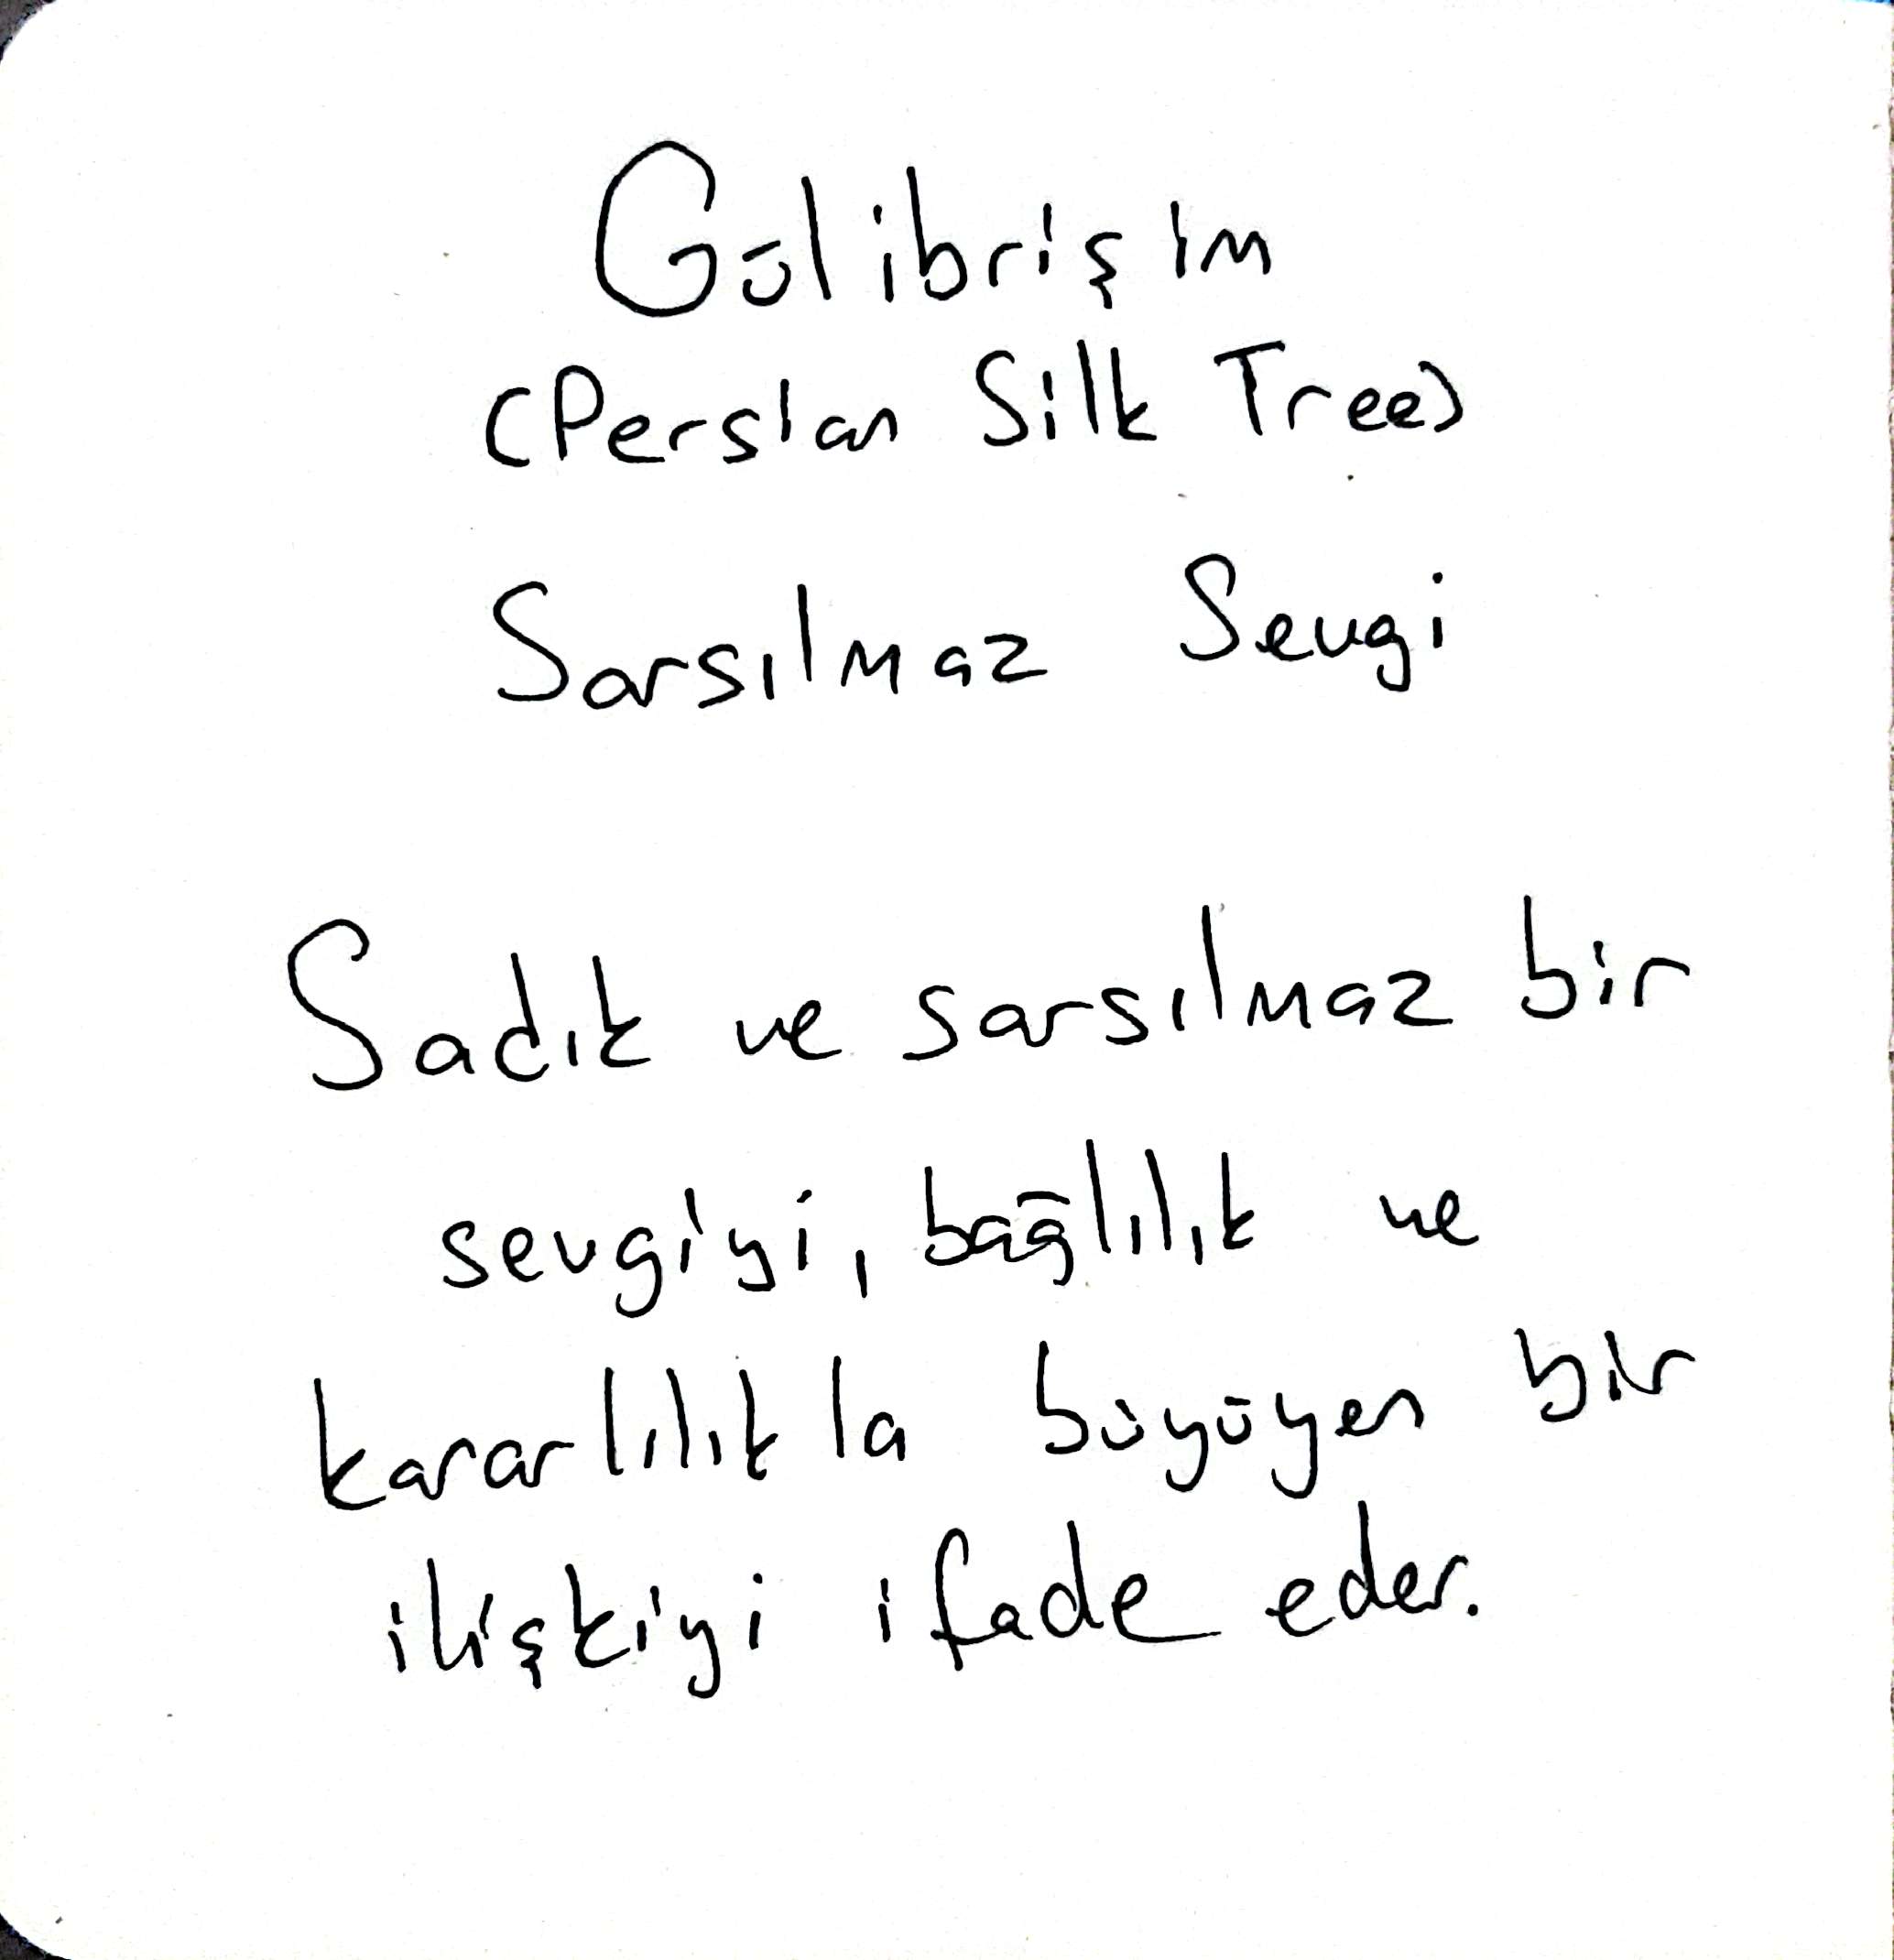 Gülibrişim
(Persian Silk Tree)
Sarsılmaz Sevgi
Sadık ve sarsılmaz bir
sevgiyi, bağlılık ve
kararlılıkla büyüyen bir
ilişkiyi ifade eder.